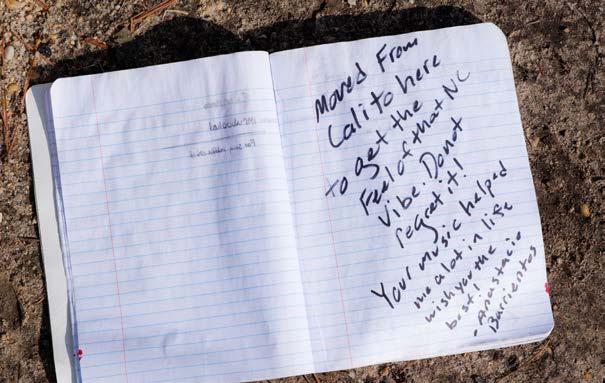 Moved From
Cali to here
to get the
Feel of that NC
Vibe. Do not
regret it!
Your music helped
me a lot in life
wish you the
best!
- Anastacio
Barrientos